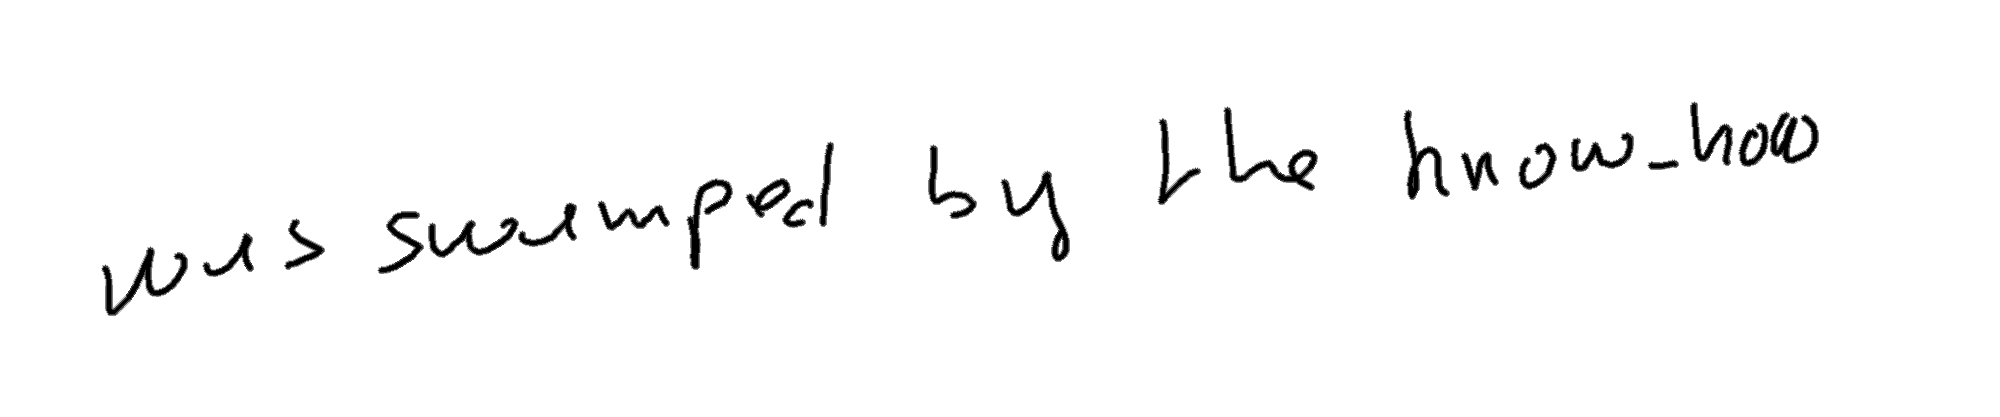 was swamped by the know-how